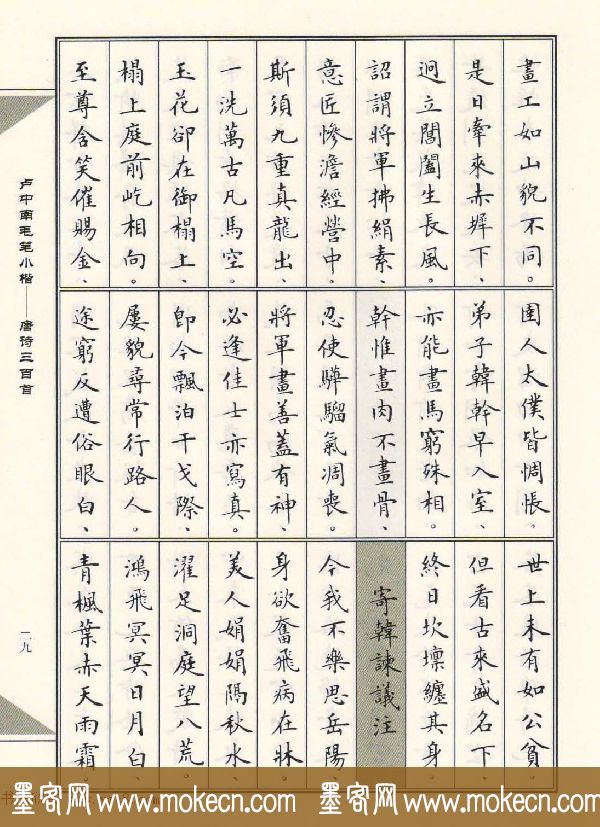 畫工如山貌不同。
是日牽來赤墀下、
迥立閶闔生長風。
詔謂將軍拂絹素、
意匠慘澹經營中。
斯須九重真龍出、
一洗萬古凡馬空。
玉花卻在御榻上、
榻上庭前屹相向。
至尊含笑催賜金、
圉人太僕皆惆悵。
弟子韓幹早入室、
亦能畫馬窮殊相。
幹惟畫肉不畫骨、
忍使驊騮氣凋喪。
將軍畫善蓋有神、
必逢佳士亦寫真。
即今飄泊干戈際、
屢貌尋常行路人。
途窮反遭俗眼白、
世上未有如公貧。
但看古來盛名下、
終日坎壈纏其身。
寄韓諫議注
今我不樂思岳陽、
身欲奮飛病在牀。
美人娟娟隔秋水、
濯足洞庭望八荒。
鴻飛冥冥日月白、
青楓葉赤天雨霜。
卢中南毛笔小楷——唐诗三百首
一九
墨客网 www.mokecn.com 墨客网 www.mokecn.com